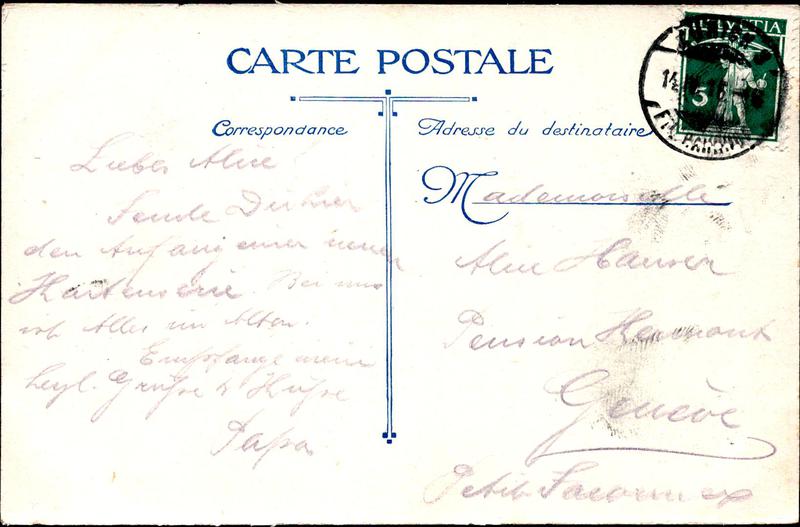 CARTE POSTALE
Correspondance
Adresse du destinataire
HELVETIA
5
Liebes Alice!
Sende Dir hier
den Anfang einer neuen
Kartenserie. Bei uns
ist Alles im Alten.
Empfange meine
herzl. Grüsse & Küsse
Papa
Mademoiselle
Alice Hauser
Pension
Genève
Petit Saconnex